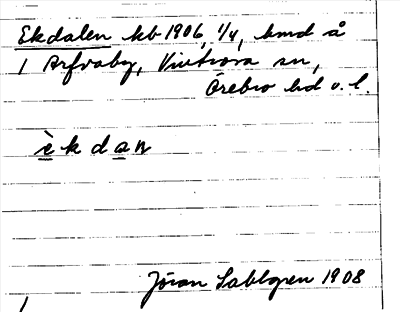 Ekdalen kb 1906, 1/4, hmd å
1 Arfvaby, Vintrosa sn,
Örebro hd o. l.
èkdan
Jöran Sahlgren 1908